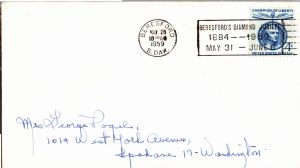 BERESFORD
S.DAK.
1959
BERESFORD'S DIAMOND JUBILEE
1884 -- 1959
MAY 31 - JUNE
CHAMPION OF LIBERTY
4¢
Mrs. George Pagel,
1019 West York Avenue,
Spokane 17-Washington.